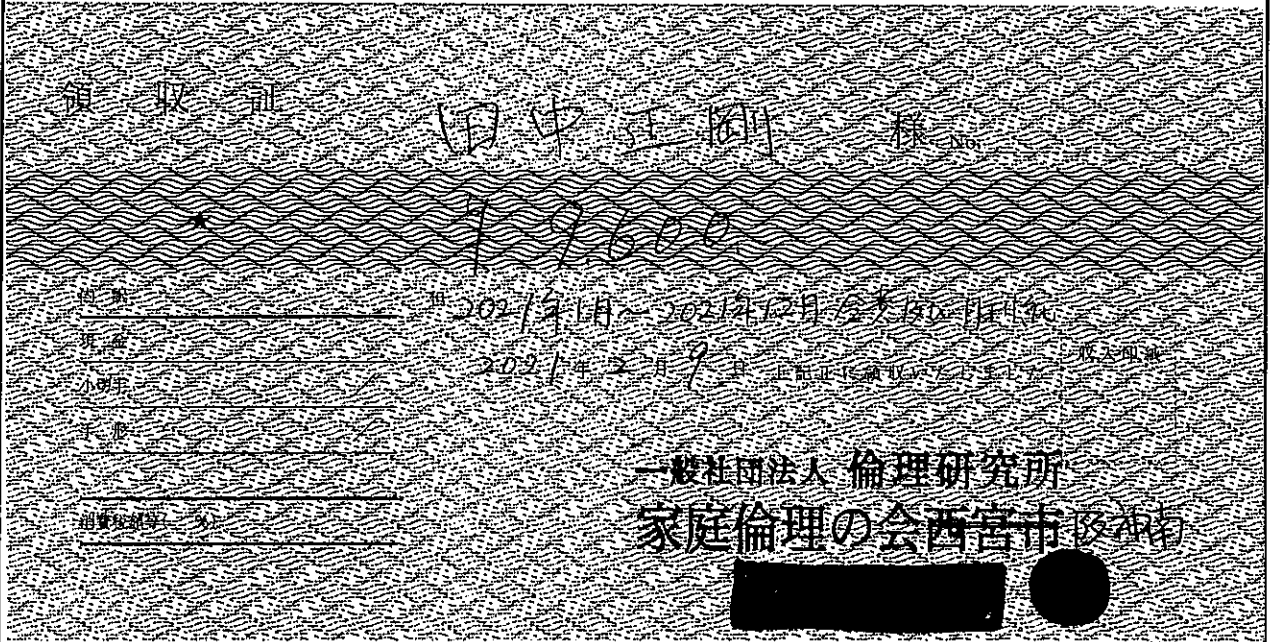 領収証
田中正剛 様 No.
★
¥9,600.
内訳
現金
小切手
手形
消費税額等( %)
但 2021年1月～2021年12月 会費
2021年2月9日 上記正に領収いたしました
収入印紙
一般社団法人 倫理研究所
家庭倫理の会西宮市 阪神南